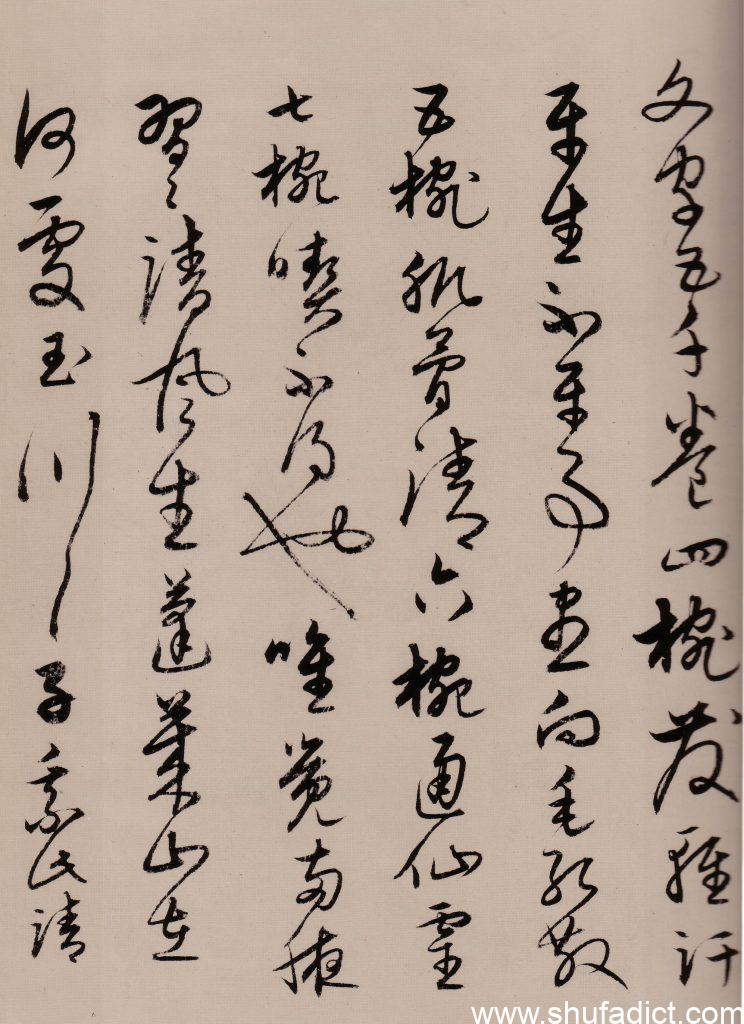 文字五千卷四椀發輕汗
平生不平事盡向毛孔散
五椀肌骨清六椀通仙靈
七椀喫不得也唯覺兩腋
習〻清風生蓬萊山在
何處玉川子乘此清
www.shufadict.com